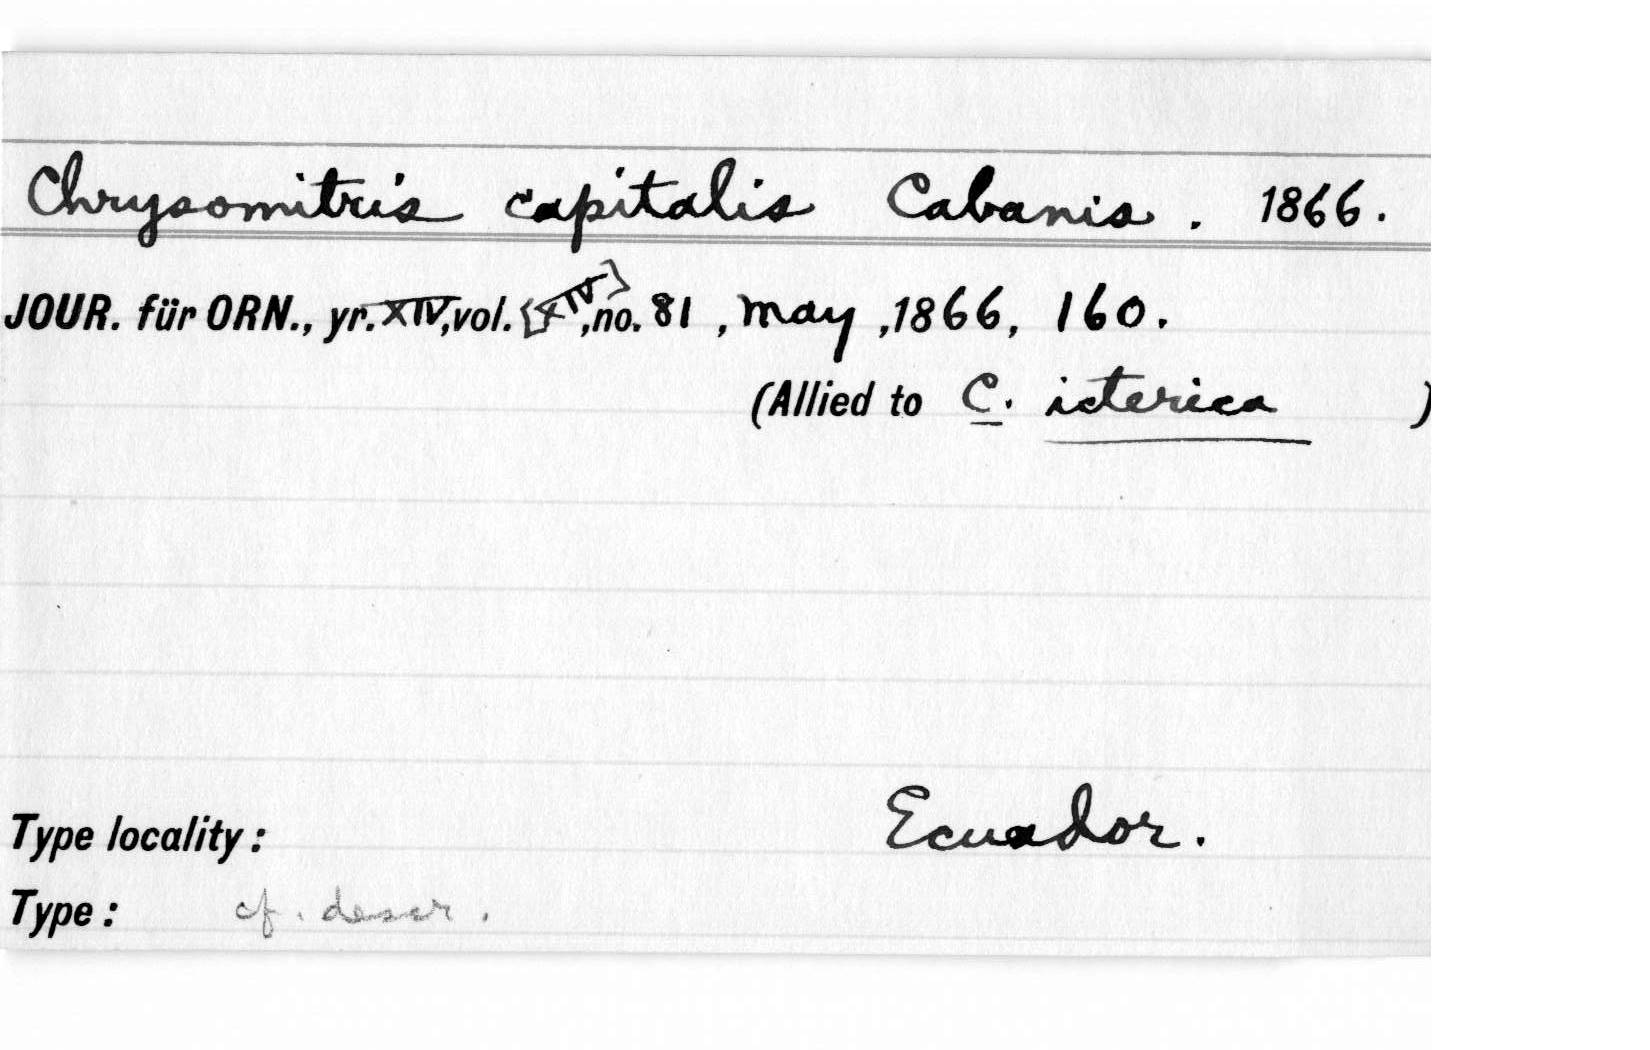 Chrysomitris capitalis Cabanis. 1866.
JOUR. für ORN., yr. XIV, vol. [XIV], no. 81, may, 1866, 160.
(Allied to C. icterica )
Type locality: Ecuador.
Type: cf. descr.